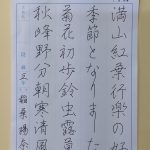 満山紅葉行楽の好
季節となりました
菊花初歩鈴虫露草
秋峰野分朝寒清風